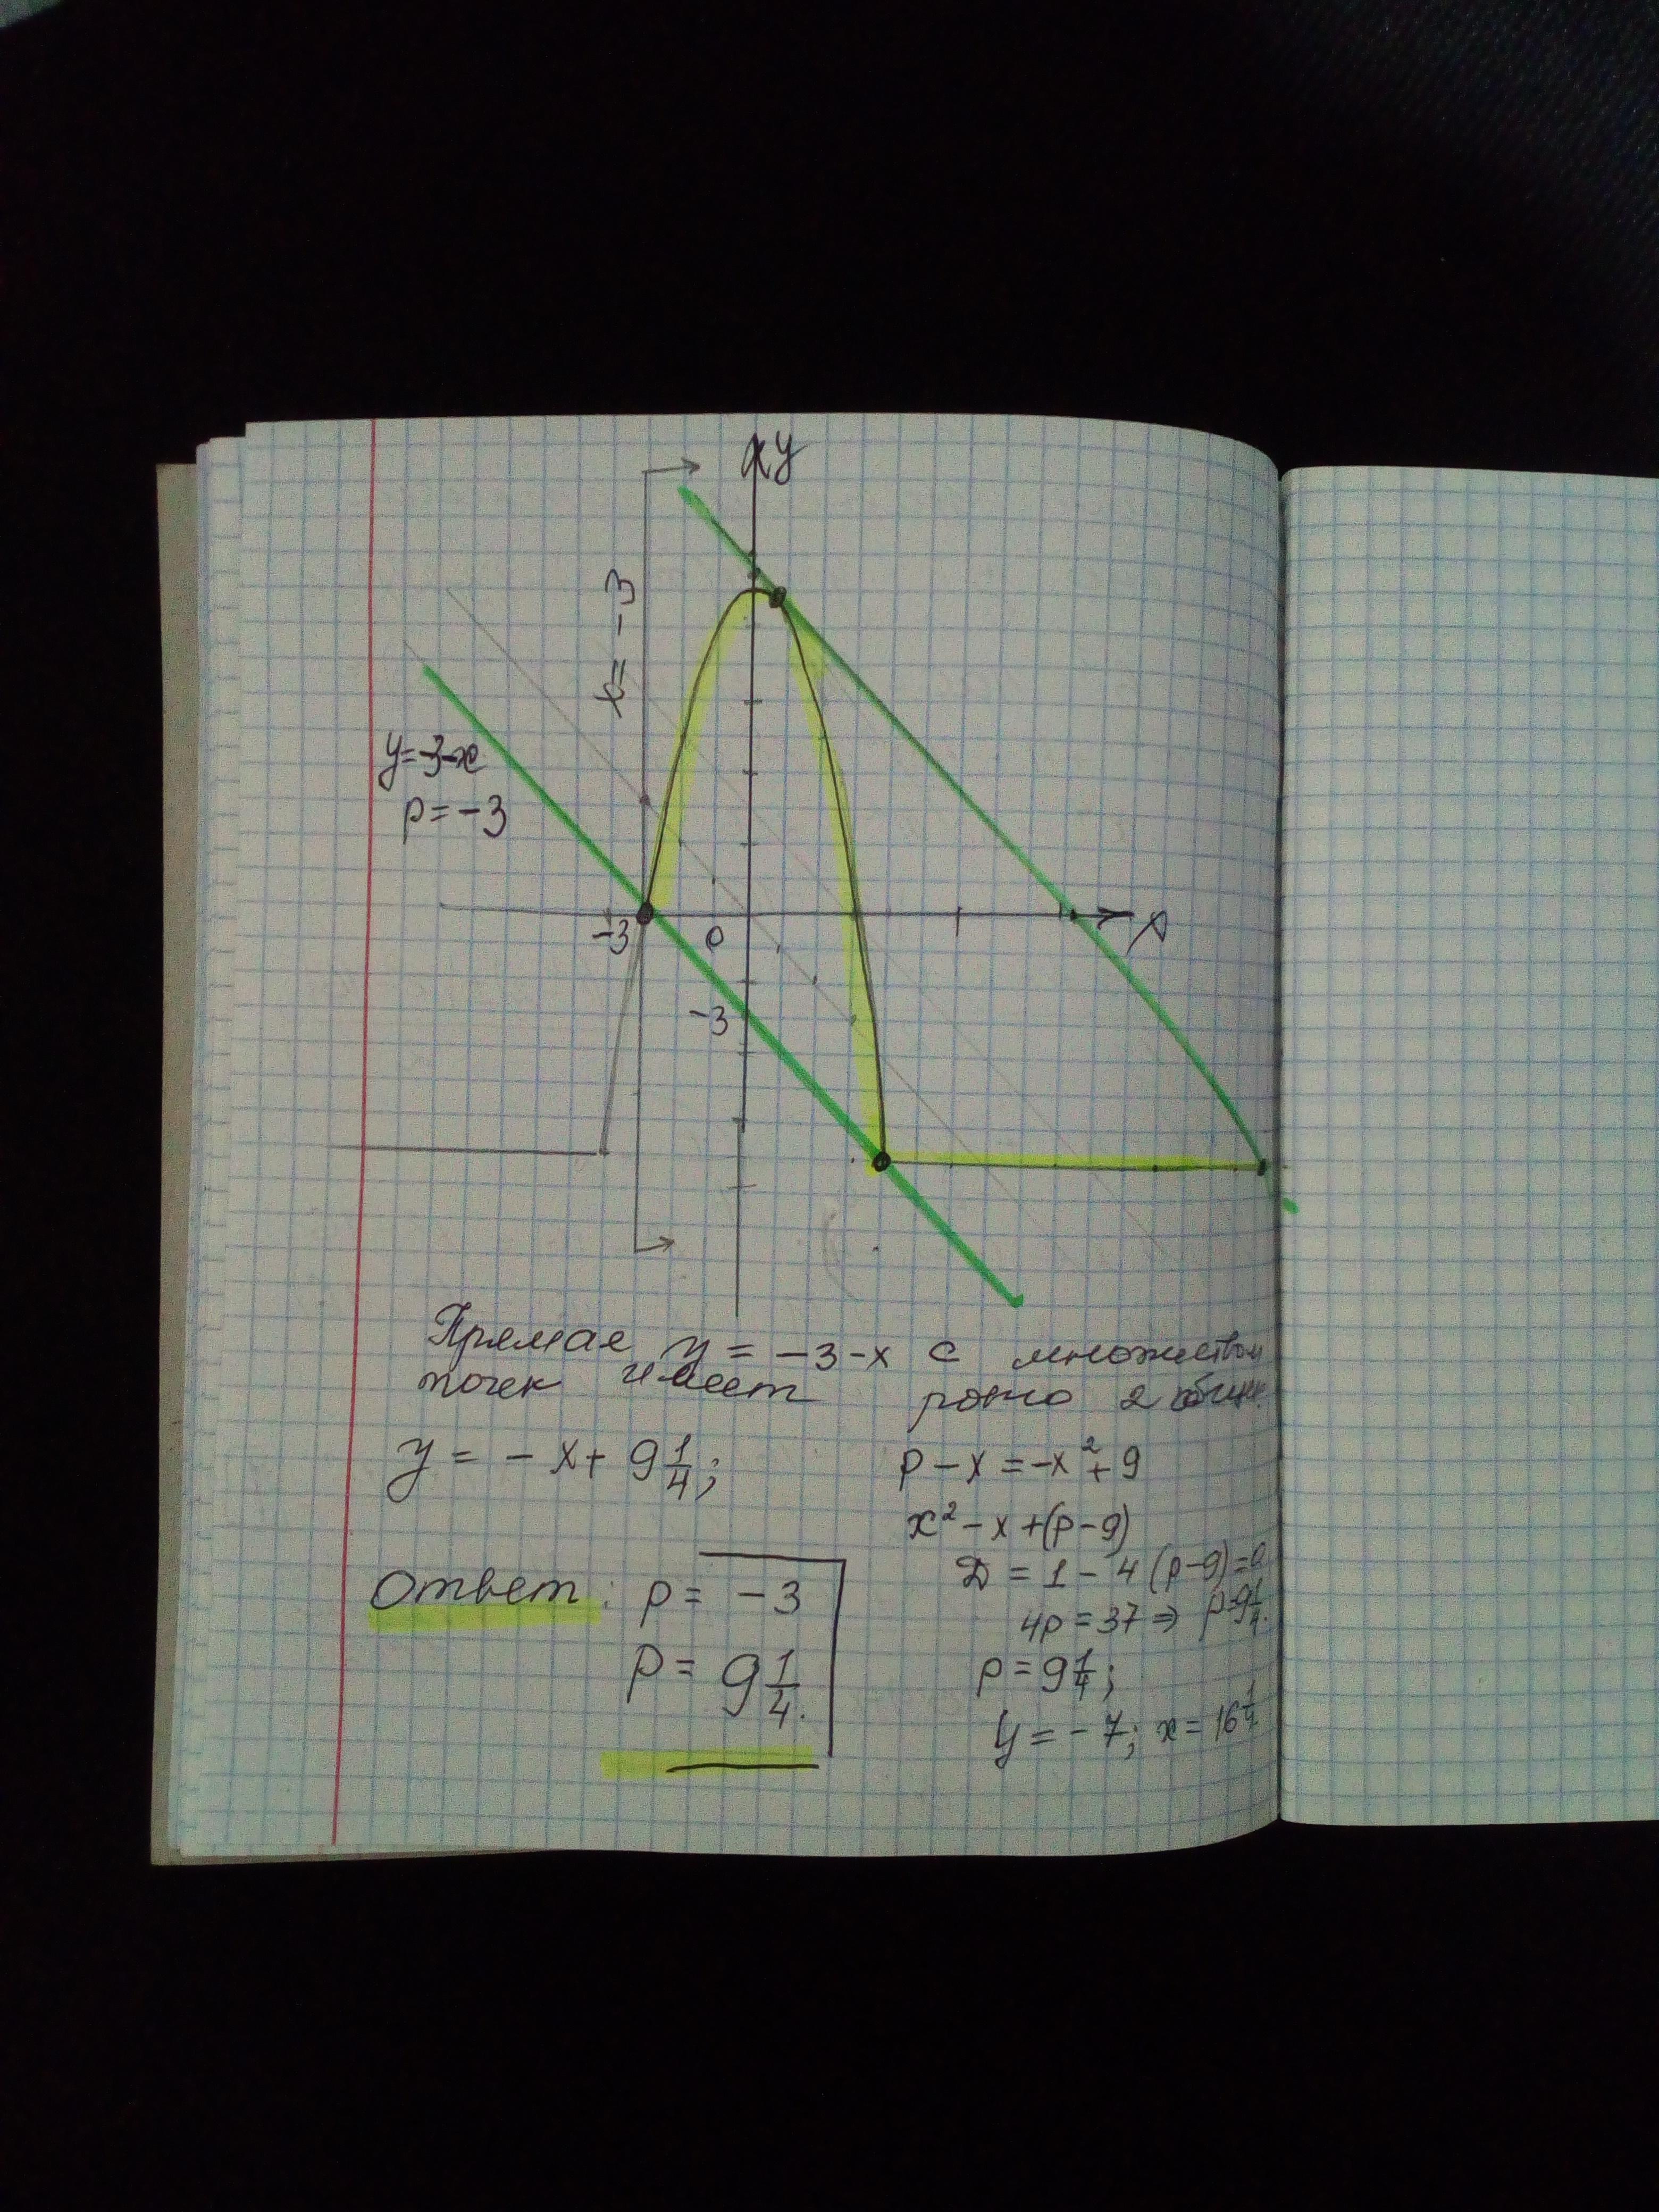 y
x = -3
y=-3-x
p=-3
-3
0
x
-3
Прямая y = -3-x с множеством
точек имеет ровно 2 общие
y = -x+ 9 1/4;
p-x=-x²+9
x²-x+(p-9)
D = 1-4(p-9)=0
4p=37 ⇒ p=9 1/4.
Ответ: p= -3
p= 9 1/4.
p=9 1/4;
y=-7; x=16 1/4